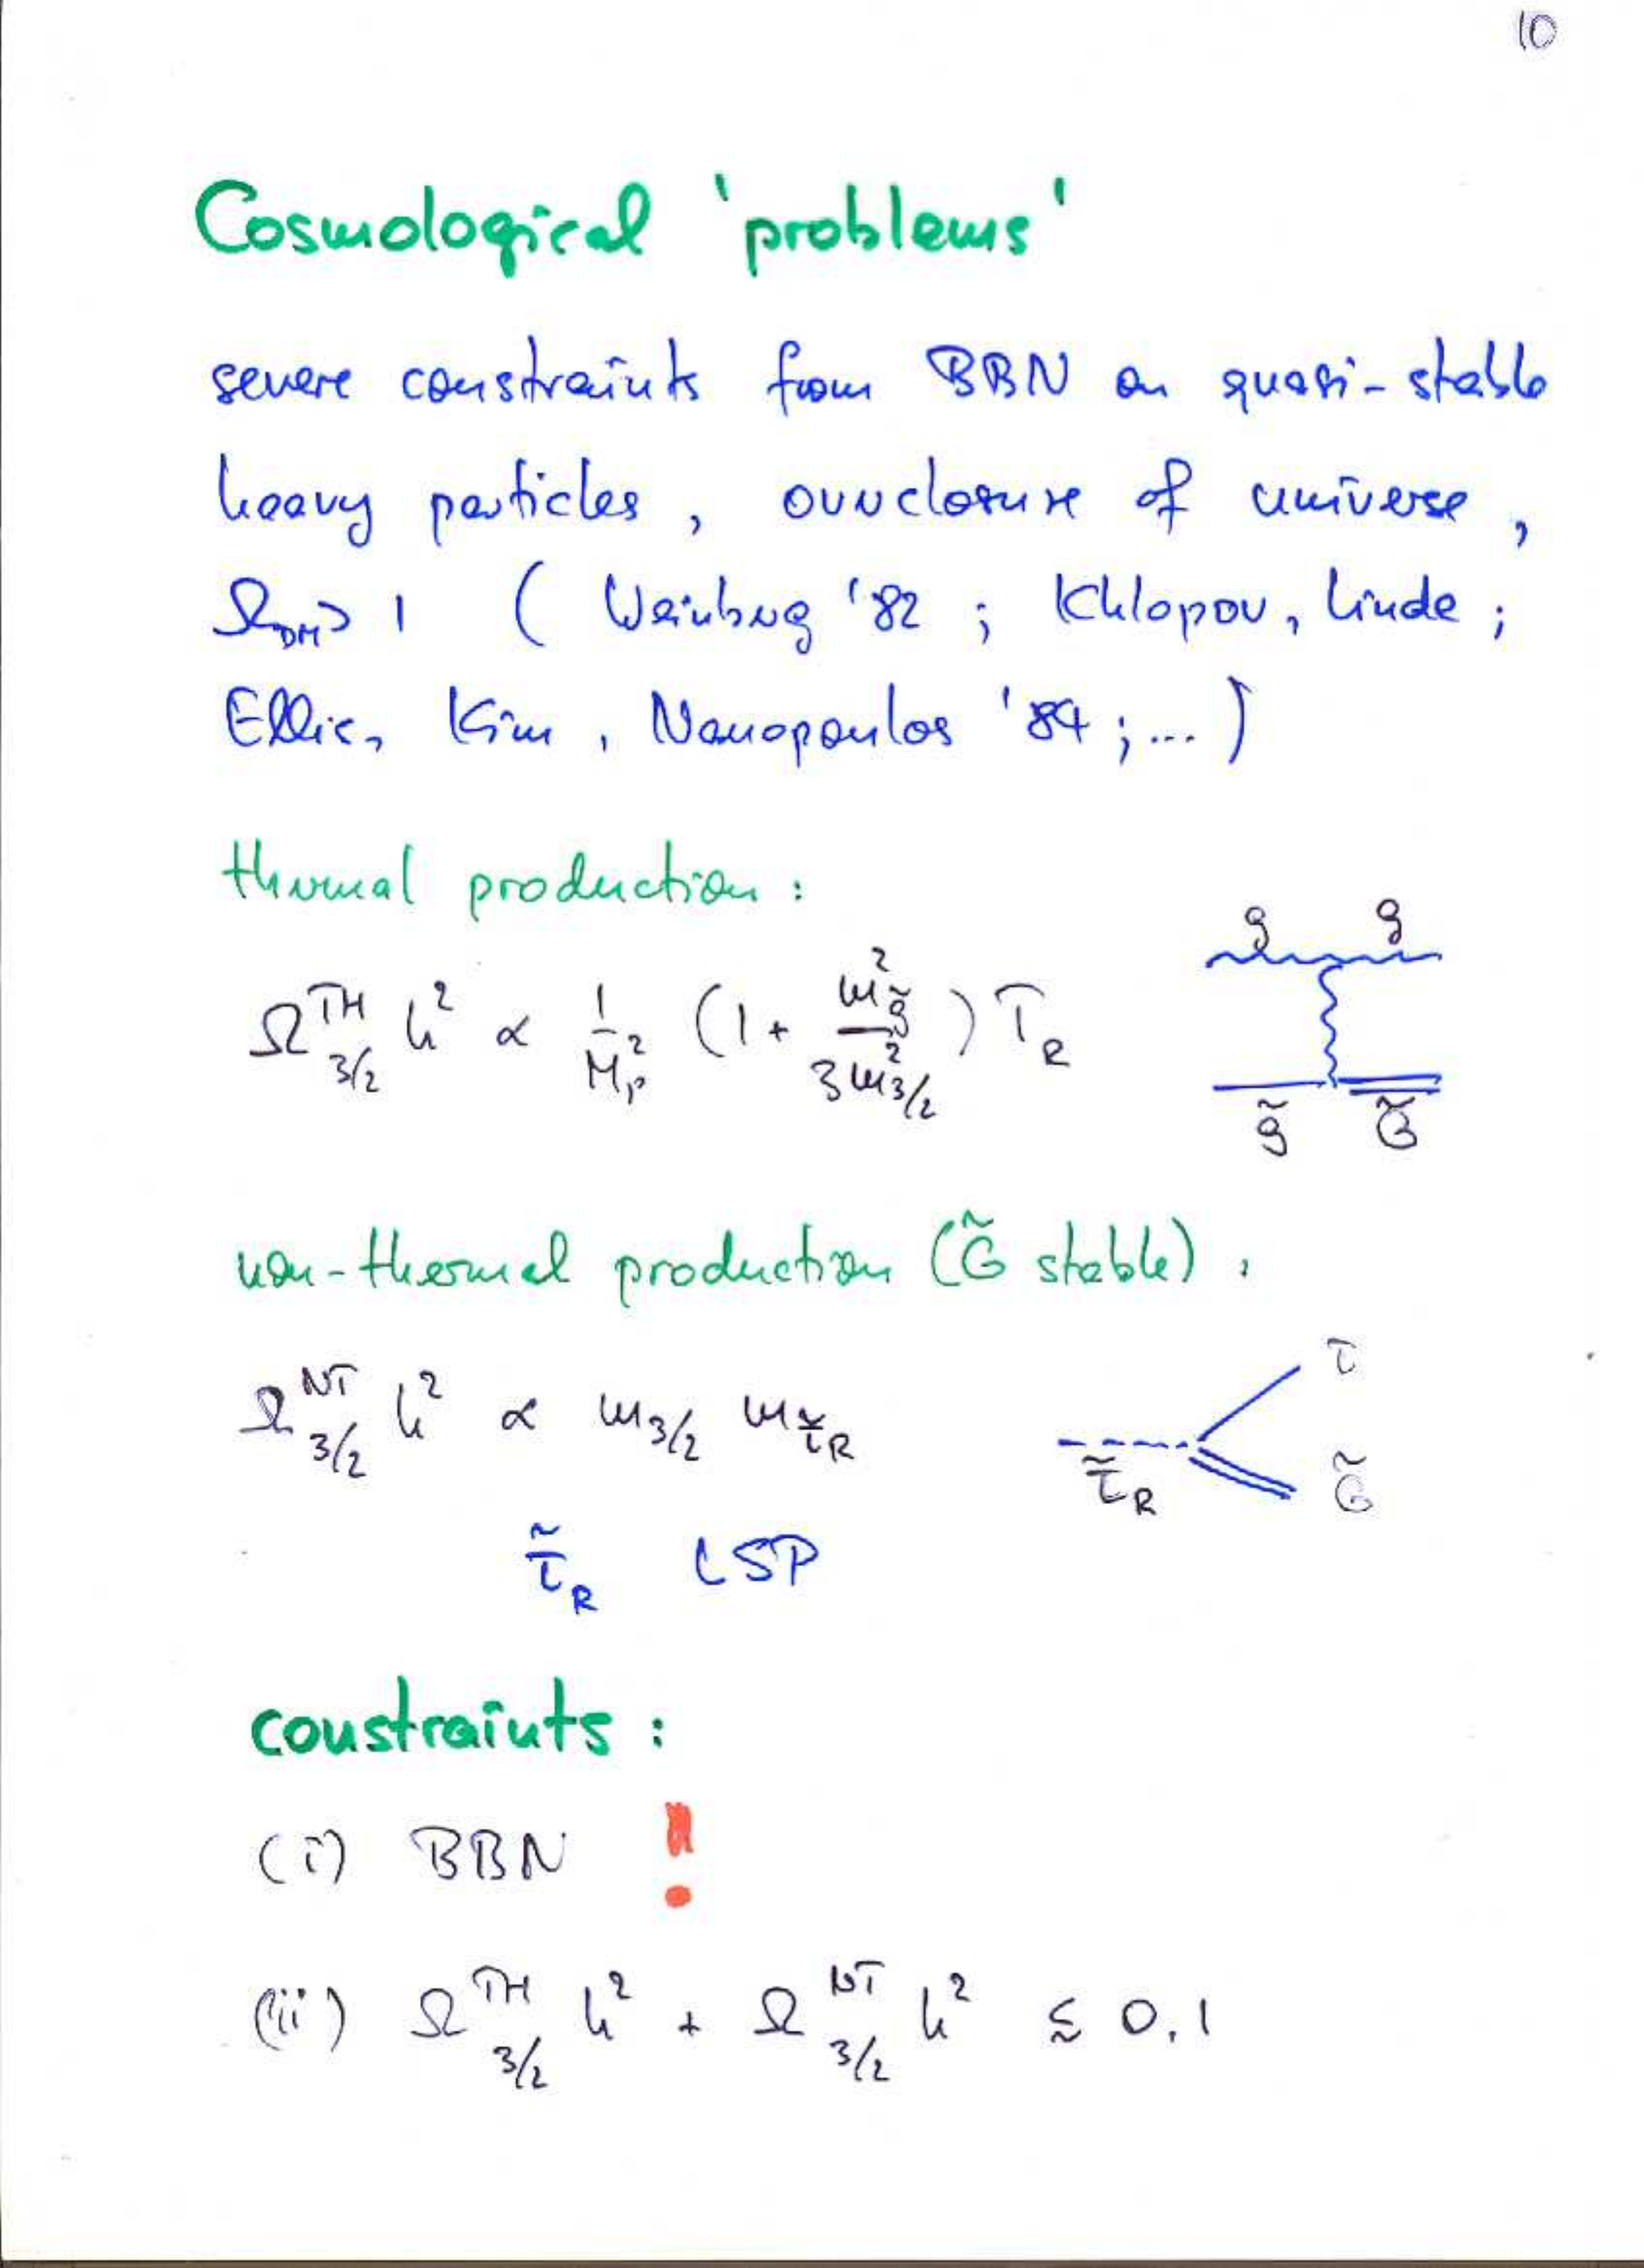 10
Cosmological 'problems'
severe constraints from BBN on quasi-stable
heavy particles, overclosure of universe,
Ω_DM > 1 ( Weinberg '82 ; Khlopov, Linde ;
Ellis, Kim, Nanopoulos '84 ; ... )
thermal production :
g g
Ω^TH_3/2 h² ∝ 1/M_P² (1 + m²_g̃ / 3m²_3/2) T_R
g̃ G̃
non-thermal production (G̃ stable) :
τ
Ω^NT_3/2 h² ∝ m_3/2 m_τ̃R
τ̃_R G̃
τ̃_R LSP
constraints :
(i) BBN !
(ii) Ω^TH_3/2 h² + Ω^NT_3/2 h² ≲ 0.1